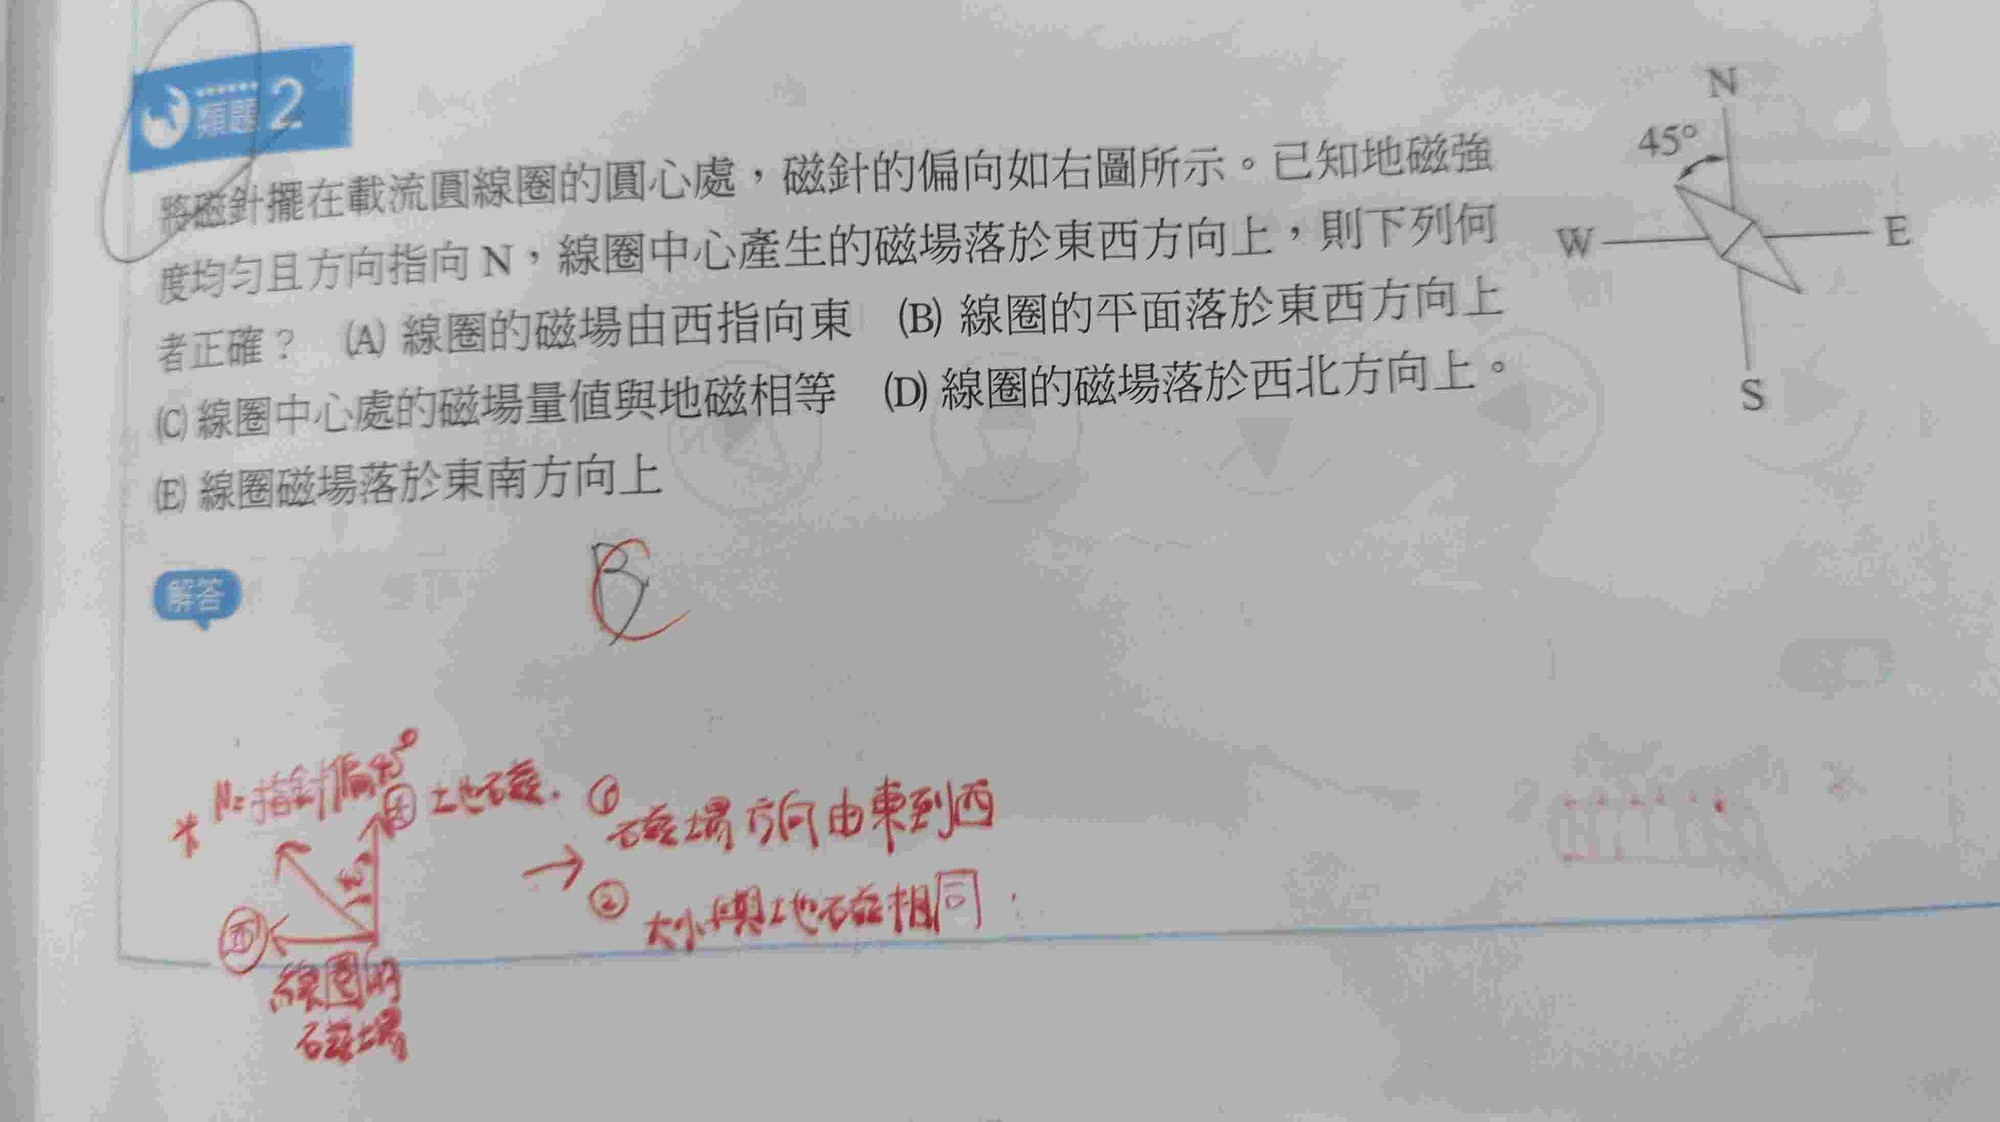 類題2
將磁針擺在載流圓線圈的圓心處，磁針的偏向如右圖所示。已知地磁強
度均勻且方向指向N，線圈中心產生的磁場落於東西方向上，則下列何
者正確？ (A) 線圈的磁場由西指向東 (B) 線圈的平面落於東西方向上
(C) 線圈中心處的磁場量值與地磁相等 (D) 線圈的磁場落於西北方向上。
(E) 線圈磁場落於東南方向上
N
45°
W
E
S
解答
B
C
* 指針偏45°
地磁.
45°
西
線圈的
磁場
→ ① 磁場方向由東到西
② 大小與地磁相同